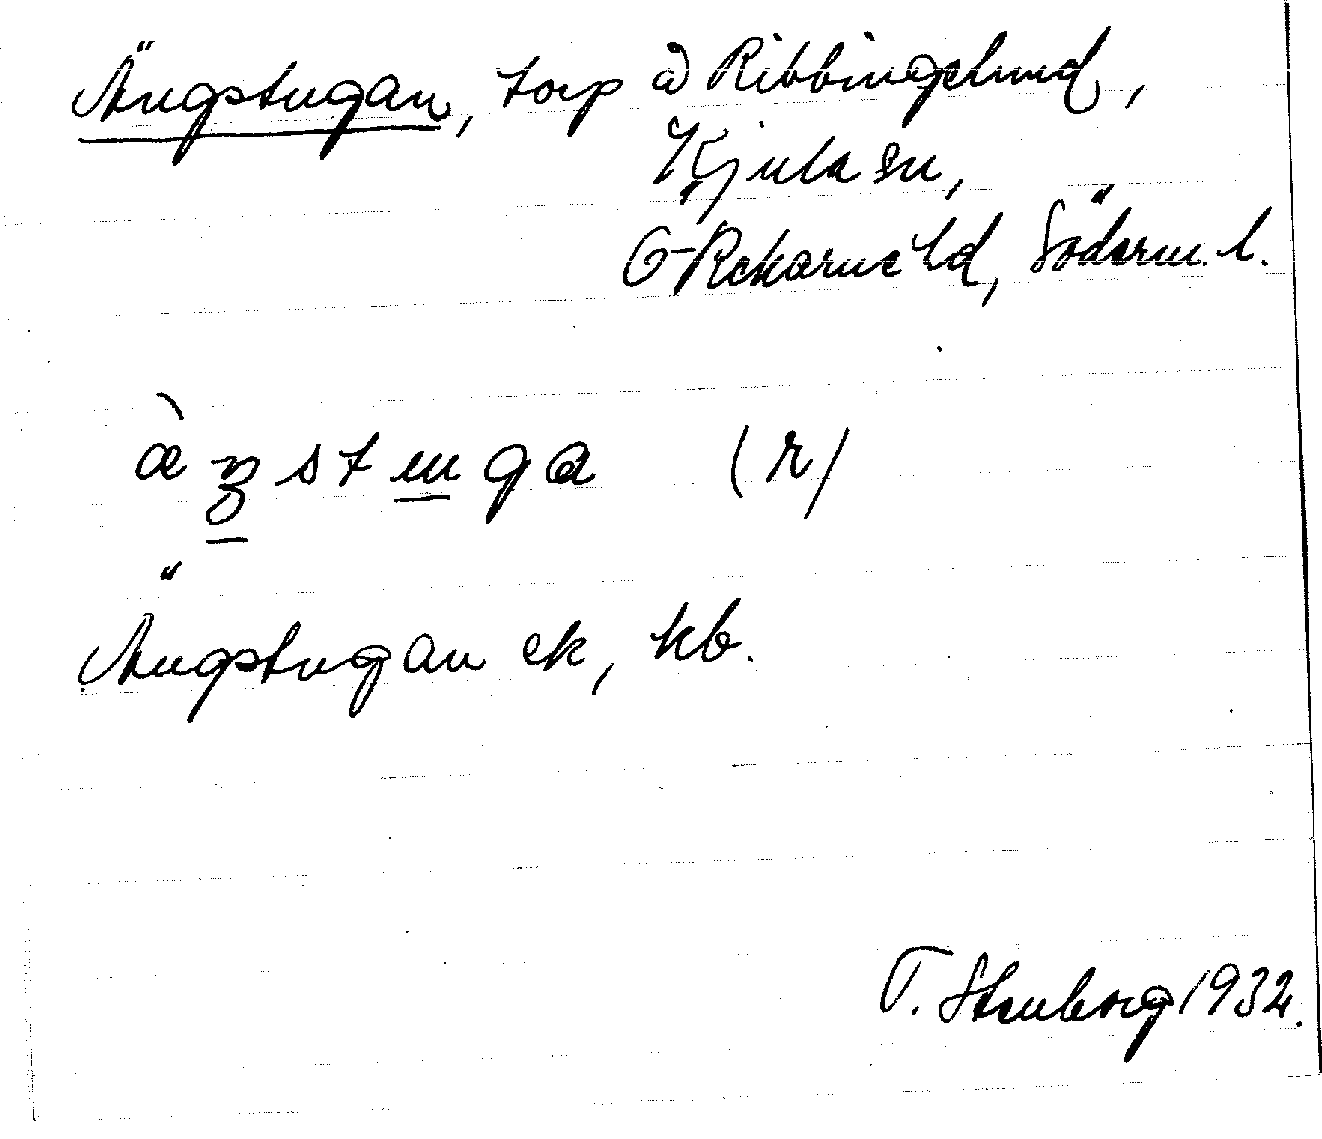 Ängstugan, torp å Ribbingelund,
Kjula sn,
Ö Rekarne hd, Söderm. l.
(r)
Ängstugan ek, kb.
T. Stenborg 1932.